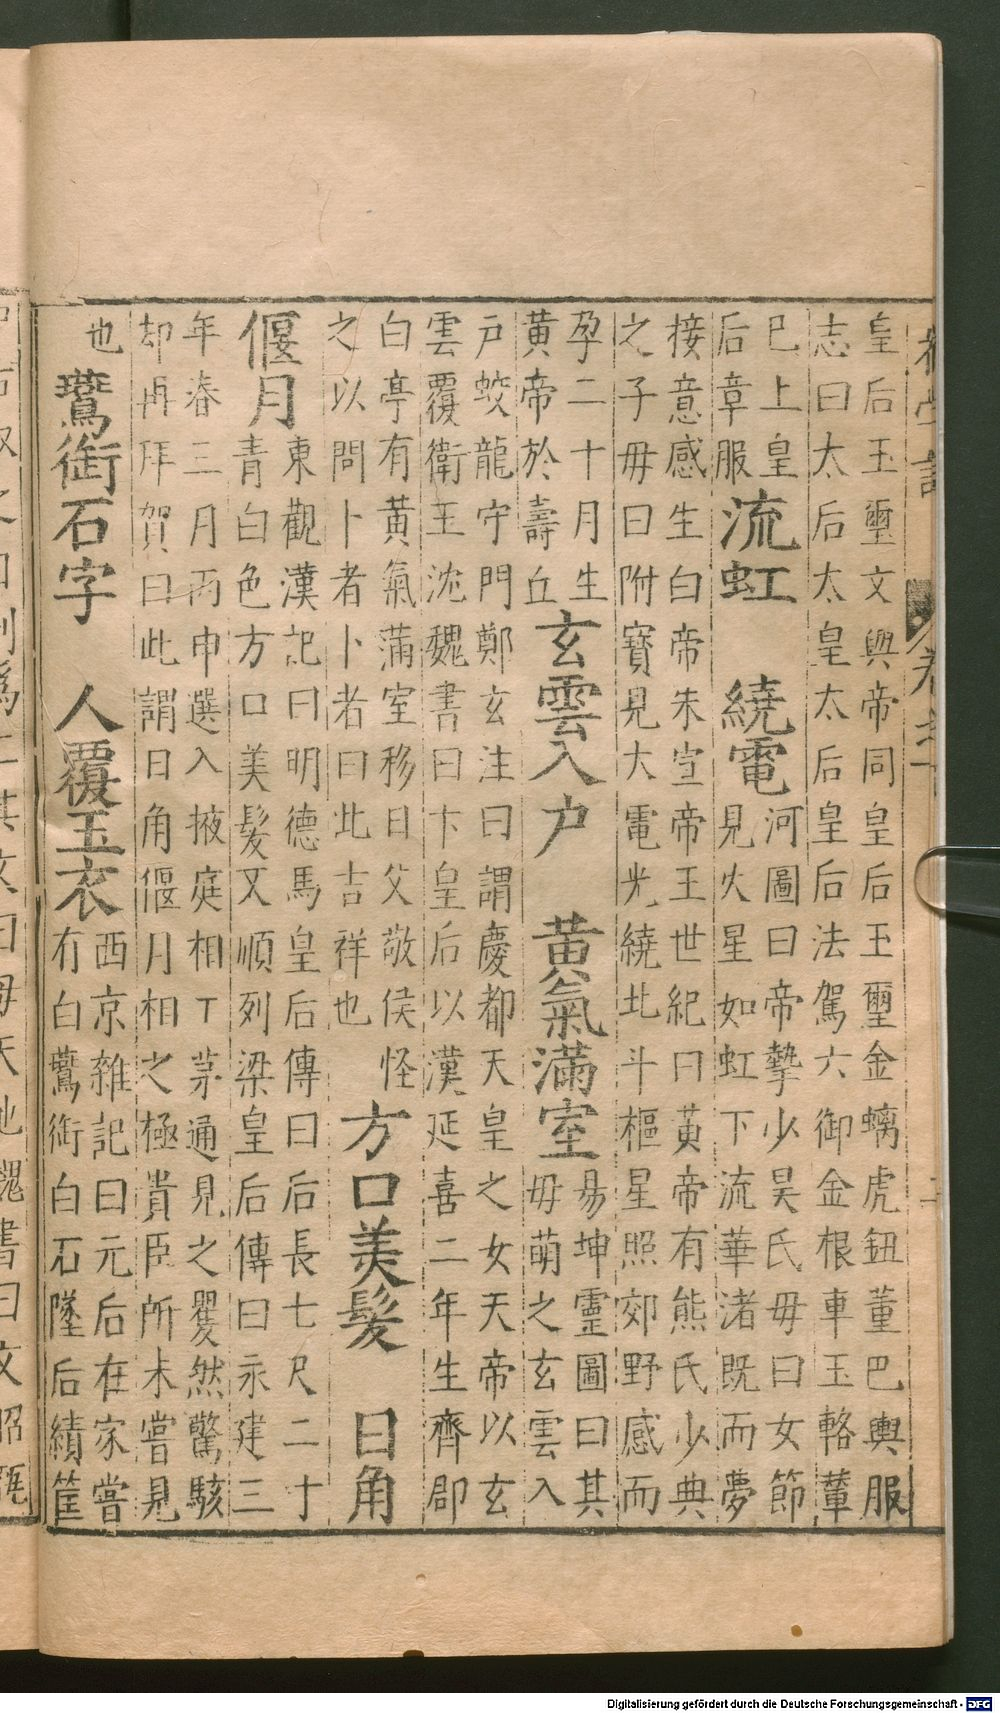 皇后玉璽文與帝同皇后玉璽金螭虎鈕董巴輿服
志曰太后太皇太后皇后法駕六御金根車玉輅輦
已上皇
后章服
流虹
繞電
河圖曰帝摯少昊氏毋曰女節
見火星如虹下流華渚既而夢
接意感生白帝朱宣帝王世紀曰黃帝有熊氏少典
之子毋曰附寶見大電光繞北斗樞星照郊野感而
孕二十月生
黃帝於壽丘
玄雲入户
黃氣滿室
易坤靈圖曰其
毋萌之玄雲入
户蛟龍守門鄭玄注曰謂慶都天皇之女天帝以玄
雲覆衛玉沈魏書曰卞皇后以漢延喜二年生齊郡
白亭有黃氣滿室移日父敬侯怪
之以問卜卜者卜者曰此吉祥也
方口美髮
日角
偃月
東觀漢記曰明德馬皇后傳曰后長七尺二十
青白色方口美髮又順列梁皇后傳曰永建三
年春三月丙申選入掖庭相丁茅通見之矍然驚駭
却再拜賀曰此謂日角偃月相之極貴臣所未嘗見
也
鷰銜石字
人覆玉衣
西京雜記曰元后在家嘗
有白鷰銜白石墜后績筐
Digitalisierung gefördert durch die Deutsche Forschungsgemeinschaft - DFG